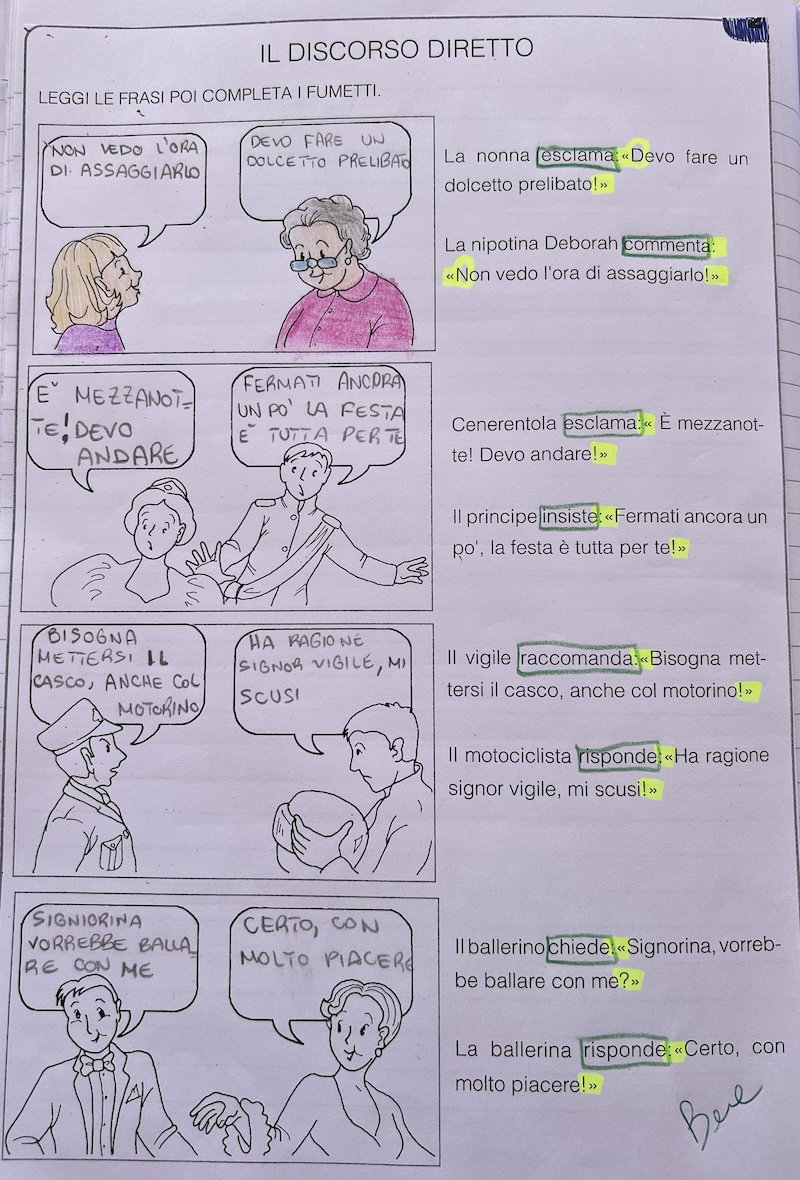 IL DISCORSO DIRETTO
LEGGI LE FRASI POI COMPLETA I FUMETTI.
NON VEDO L'ORA
DI ASSAGGIARLO
DEVO FARE UN
DOLCETTO PRELIBATO
La nonna esclama: «Devo fare un
dolcetto prelibato!»
La nipotina Deborah commenta:
«Non vedo l'ora di assaggiarlo!»
E' MEZZANOT=
TE! DEVO
ANDARE
FERMATI ANCORA
UN PO' LA FESTA
E' TUTTA PER TE
Cenerentola esclama: « È mezzanot-
te! Devo andare!»
Il principe insiste: «Fermati ancora un
po', la festa è tutta per te!»
BISOGNA
METTERSI IL
CASCO, ANCHE COL
MOTORINO
HA RAGIONE
SIGNOR VIGILE, MI
SCUSI
Il vigile raccomanda: «Bisogna met-
tersi il casco, anche col motorino!»
Il motociclista risponde: «Ha ragione
signor vigile, mi scusi!»
SIGNIORINA
VORREBBE BALLA_
RE CON ME
CERTO, CON
MOLTO PIACERE
Il ballerino chiede: «Signorina, vorreb-
be ballare con me?»
La ballerina risponde: «Certo, con
molto piacere!»
Bene